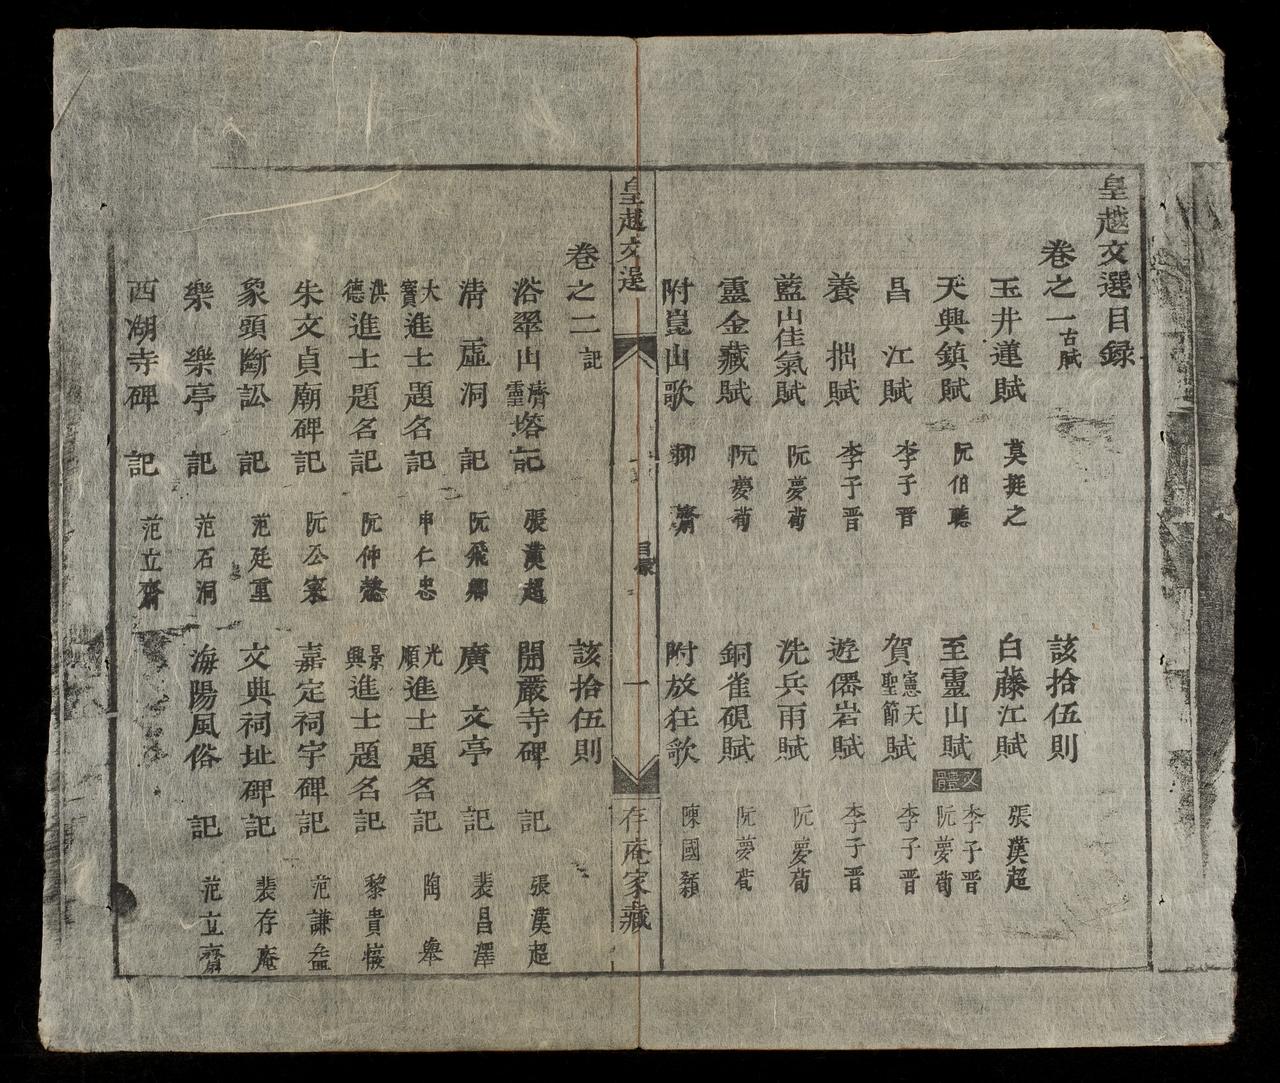 皇越文選目録
卷之一 古賦 該拾伍則
玉井蓮賦 莫挺之 白藤江賦 張漢超
天興鎮賦 阮伯聰 至靈山賦 文體 李子晋 阮夢荀
昌江賦 李子晋 賀憲天聖節賦 李子晋
養拙賦 李子晋 遊僊岩賦 李子晋
藍山佳氣賦 阮夢荀 洗兵雨賦 阮夢荀
靈金藏賦 阮夢荀 銅雀硯賦 阮夢荀
附崑山歌 柳齋 附放狂歌 陳國
皇越文選 目錄 一 存庵家藏
卷之二 記 該拾伍則
浴翠山靈濟塔記 張漢超 開嚴寺碑記 張漢超
清虛洞記 阮飛卿 廣文亭記 裴昌澤
大寶進士題名記 申仁忠 光順進士題名記 陶舉
洪德進士題名記 阮仲 景興進士題名記 黎貴
朱文貞廟碑記 阮公寀 嘉定祠宇碑記 范謙益
象頭斷訟記 范廷重 文典祠址碑記 裴存庵
樂樂亭記 范石洞 海陽風俗記 范立齋
西湖寺碑記 范立齋